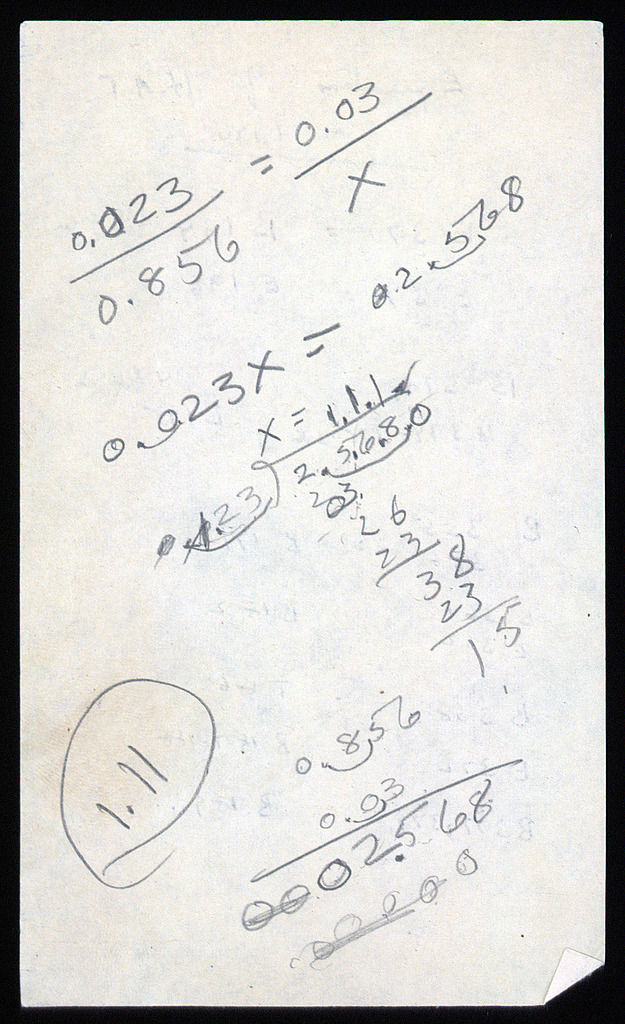 0.023 = 0.03
0.856 X
0.023X = 0.2.568
X = 1.1.1
0.023 ) 2.5.6.8.0
23
26
23
38
23
15
0.856
0.03
0002568
00000
1.11